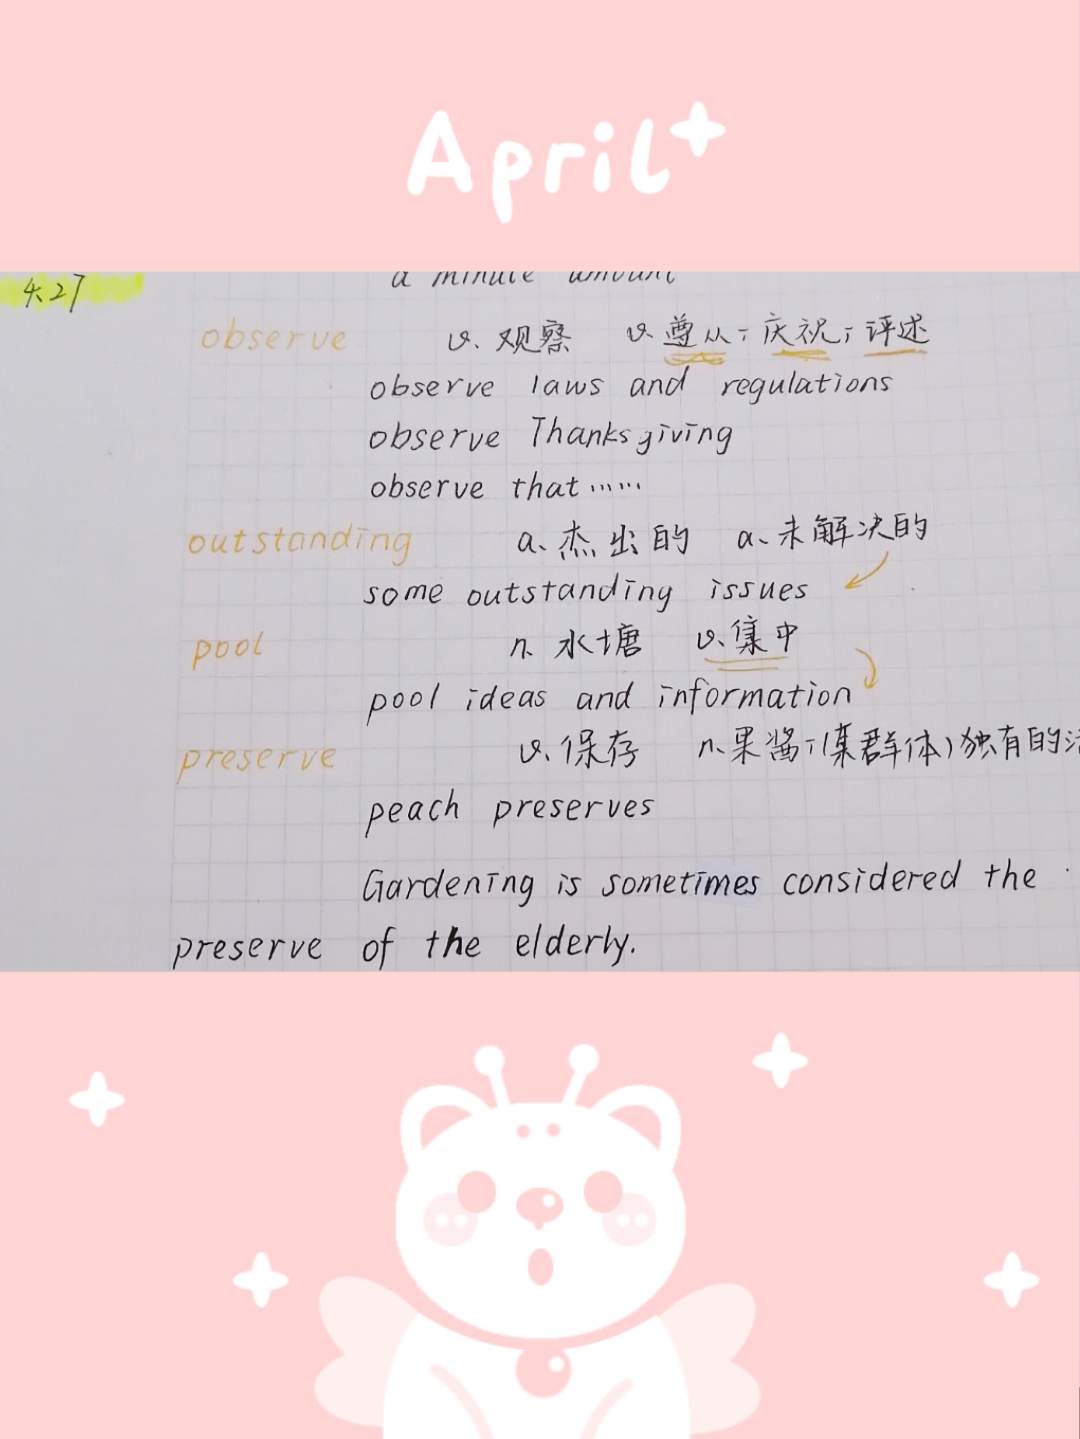 April
4.27
a minute amount
observe v. 观察 v. 尊从；庆祝；评述
observe laws and regulations
observe Thanksgiving
observe that……
outstanding a. 杰出的 a. 未解决的
some outstanding issues
pool n. 水塘 v. 集中
pool ideas and information
preserve v. 保存 n. 果酱；(某群体)独有的
peach preserves
Gardening is sometimes considered the
preserve of the elderly.